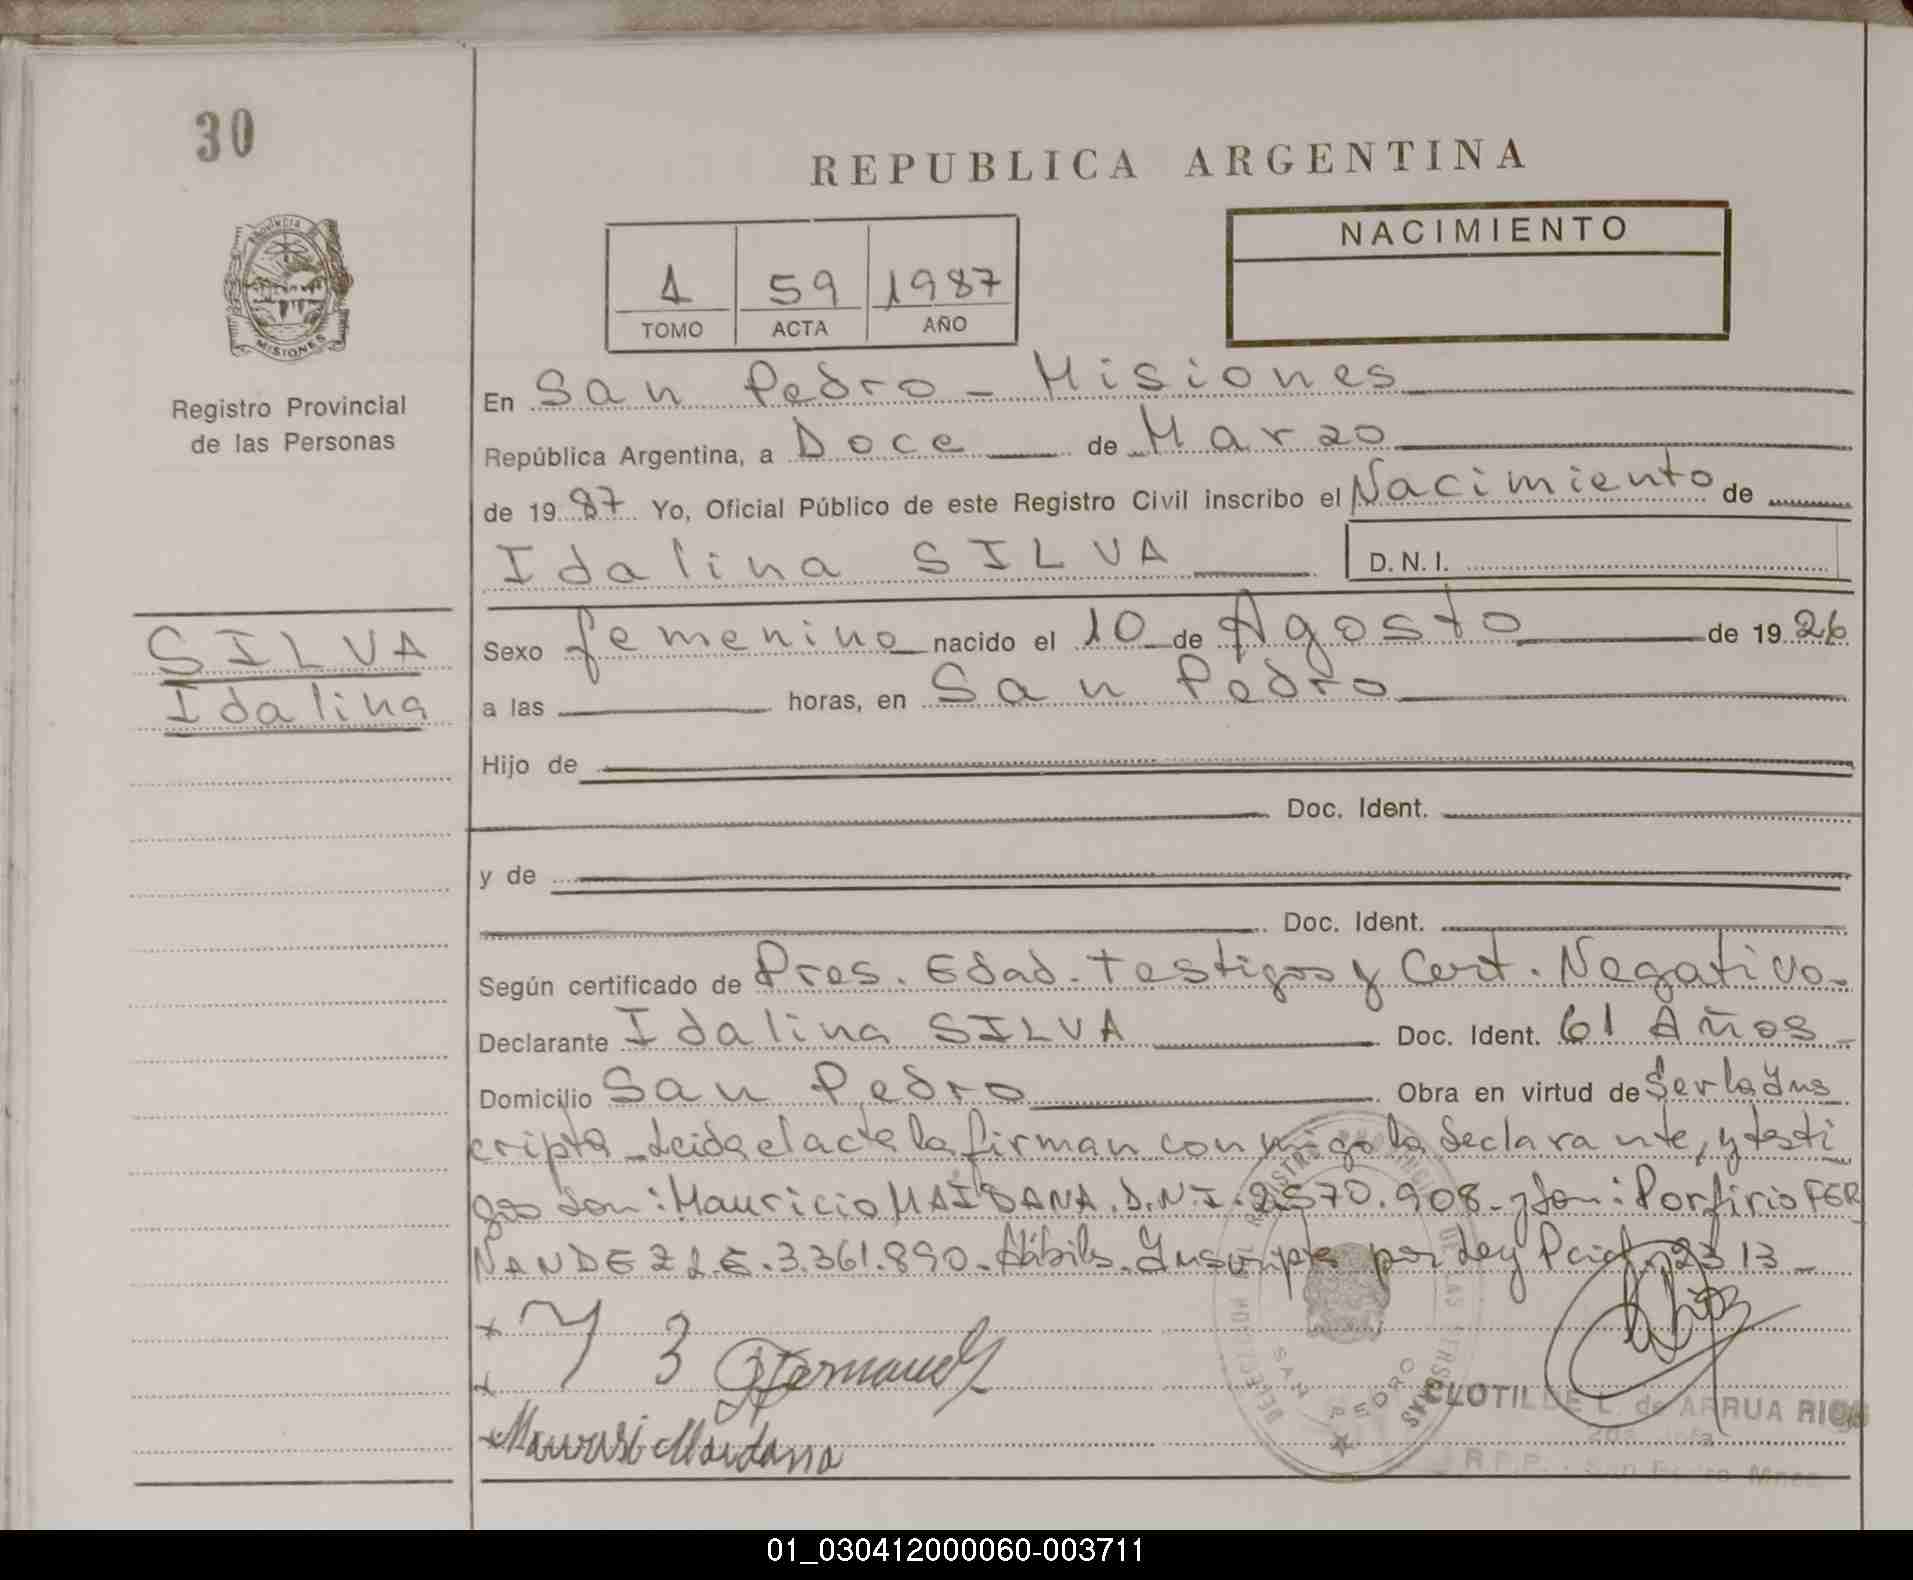 30
REPUBLICA ARGENTINA
PROVINCIA
MISIONES
Registro Provincial
de las Personas
1 59 1987
TOMO ACTA AÑO
NACIMIENTO
En San Pedro - Misiones
República Argentina, a Doce de Marzo
de 1987 Yo, Oficial Público de este Registro Civil inscribo el Nacimiento de
Idalina SILVA D. N. I.
SILVA
Idalina
Sexo femenino nacido el 10 de Agosto de 1926
a las horas, en San Pedro
Hijo de
Doc. Ident.
y de
Doc. Ident.
Según certificado de Pres. Edad - testigos y Cert. Negativo -
Declarante Idalina SILVA Doc. Ident. 61 Años -
Domicilio San Pedro Obra en virtud de Ser la Yns
cripta - Leida el acta la firman conmigo la declarante, y testi
gos Son: Mauricio MAIDANA. D.N.I. 2570.908 - y Don: Porfirio FER
NANDEZ L.E. 3.361.890 - Hábiles. Ynscripta por Ley Pcial. 2313 -
x
x Fernandez
x Maurisi Maidana
REGISTRO PROVINCIAL DE LAS PERSONAS
SAN PEDRO
CLOTILDE L. de ARRUA RIOS
R.P.P. - San Pedro - Mnes.
01_030412000060-003711